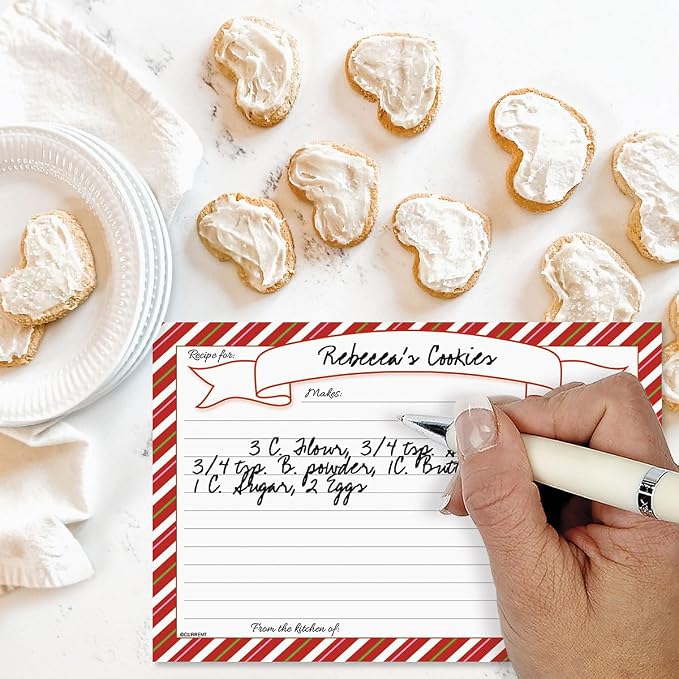 Recipe for:
Rebecca's Cookies
Makes:
3 C. Flour, 3/4 tsp.
3/4 tsp. B. powder, 1C.
1 C. Sugar, 2 Eggs
From the kitchen of:
©CURRENT